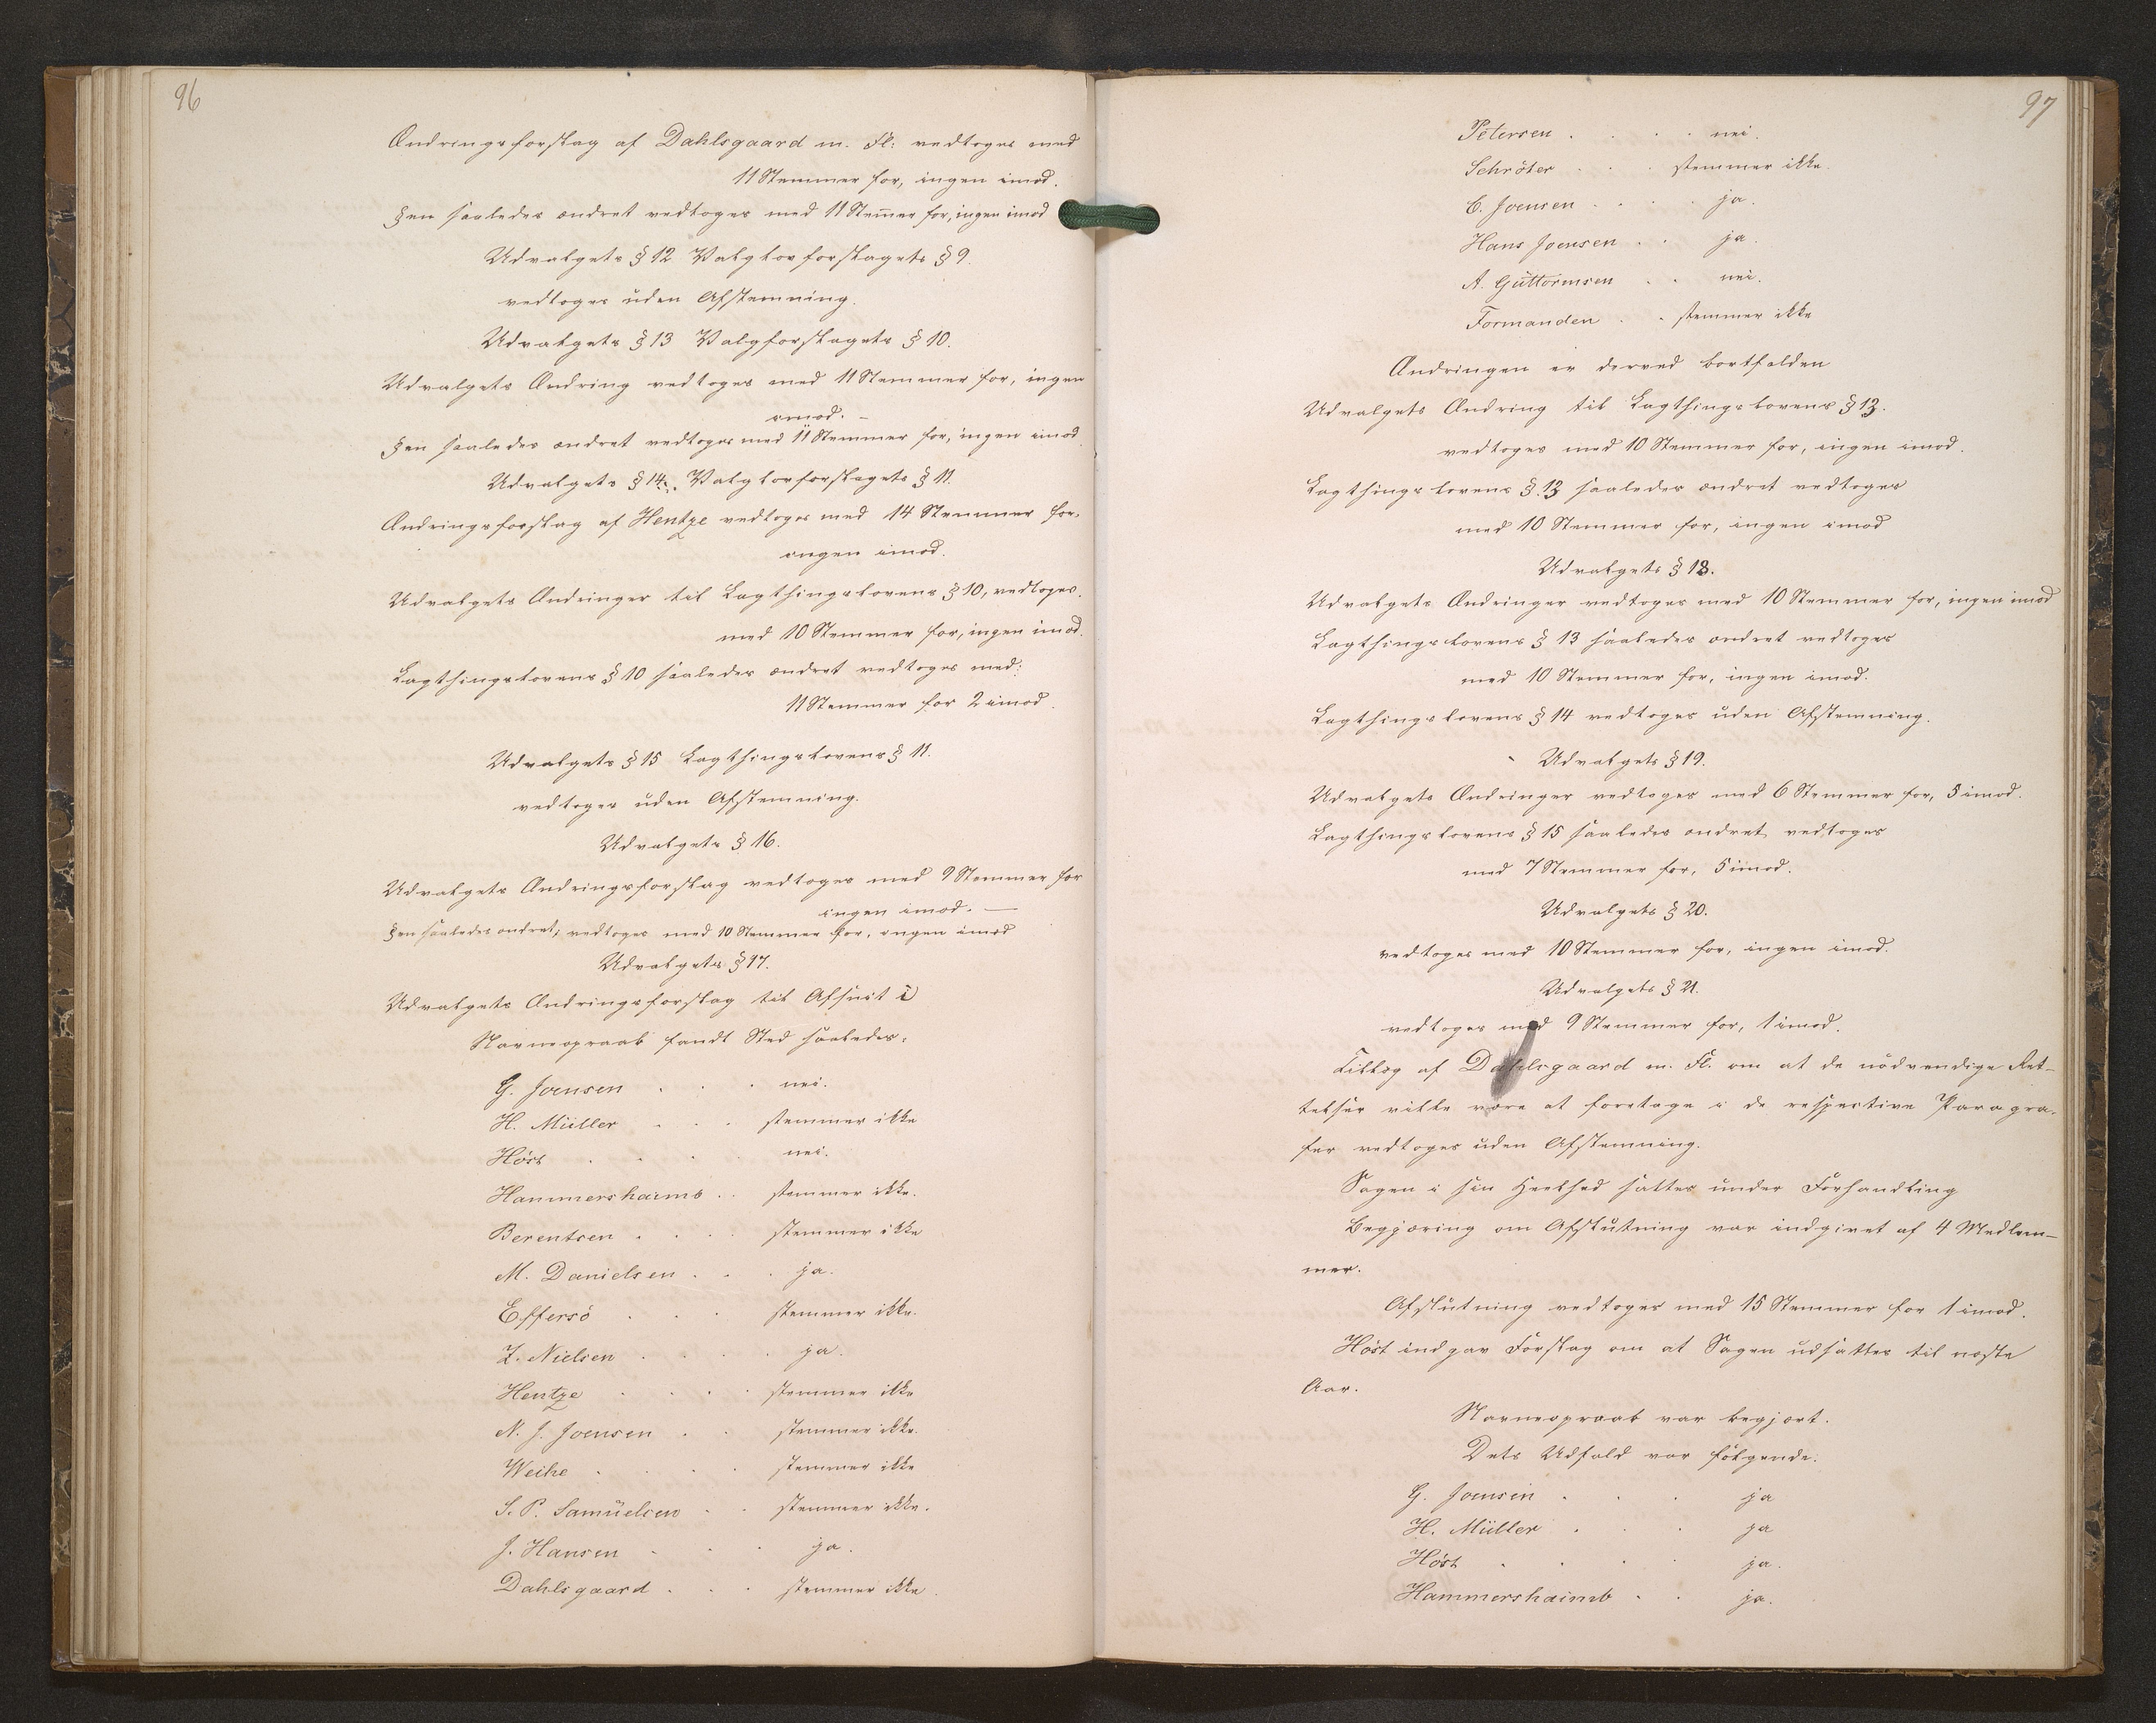 96
Ændringsforslag af Dahlsgaard m. Fl. vedtoges med
11 Stemmer for, ingen imod.
§en saaledes ændret vedtoges med 11 Stem̄er for, ingen imod
Udvalgets § 12 Valglovforslagets § 9.
vedtoges uden Afstemning.
Udvalgets § 13 Valgforslagets § 10.
Udvalgets Ændring vedtoges med 11 Stemmer for, ingen
imod. –
§en saaledes ændret vedtoges med 11 Stemmer for, ingen imod.
Udvalgets § 14. Valglovforslagets § 11.
Ændringsforslag af Hentze vedtoges med 14 Stemmer for,
ingen imod.
Udvalgets Ændringer til Lagthingslovens § 10, vedtoges.
med 10 Stemmer for, ingen imod.
Lagthingslovens § 10 saaledes ændret vedtoges med:
11 Stemmer for 2 imod.
Udvalgets § 15 Lagthingslovens § 11.
vedtoges uden Afstemning.
Udvalgets § 16.
Udvalgets Ændringsforslag vedtoges med 9 Stemmer for
ingen imod. —
§en saaledes ændret, vedtoges med 10 Stemmer for, ingen imod
Udvalgets § 17.
Udvalgets Ændringsforslag til Afsnit i
Navneopraab fandt Sted saaledes:
G. Joensen . . . nei.
H. Müller . . . stemmer ikke
Höst . . . . nei.
Hammershaimb . . stemmer ikke.
Berentsen . . . . stemmer ikke
M. Danielsen . . . ja.
Effersö . . . stemmer ikke.
Z. Nielsen . . . . ja.
Hentze . . . . stemmer ikke
N. J. Joensen . . stemmer ikke.
Weihe . . . . stemmer ikke
S. P. Samüelsen . . stemmer ikke.
J. Hansen . . . ja.
Dahlsgaard . . . stemmer ikke.
97
Petersen . . . . nei.
Schröter . . . stemmer ikke.
C. Joensen . . . . ja.
Hans Joensen . . ja.
A. Güttormsen . . nei.
Formanden . . stemmer ikke
Ændringen er derved bortfalden
Udvalgets Ændring til Lagthingslovens § 12.
vedtoges med 10 Stemmer for, ingen imod.
Lagthingslovens § 12 saaledes ændret vedtoges
med 10 Stemmer for, ingen imod
Udvalgets § 18.
Udvalgets Ændringer vedtoges med 10 Stemmer for, ingen imod
Lagthingslovens § 13 saaledes ændret vedtoges
med 10 Stemmer for, ingen imod.
Lagthingslovens § 14 vedtoges uden Afstemning.
Udvalgets § 19.
Udvalgets Ændringer vedtoges med 6 Stemmer for, 5 imod.
Lagthingslovens § 15 saaledes ændret vedtoges
med 7 Stemmer for, 5 imod.
Udvalgets § 20.
vedtoges med 10 Stemmer for, ingen imod.
Udvalgets § 21.
vedtoges med 9 Stemmer for, 1 imod.
Tillæg af Dahlsgaard m. Fl. om at de nödvendige Ret-
telser ville være at foretage i de respective Paragra-
fer vedtoges uden Afstemning.
Sagen i sin Heelhed sattes under Forhandling
Begjæring om Afslutning var indgivet af 4 Medlem-
mer.
Afslutning vedtoges med 15 Stemmer for 1 imod.
Höst indgav Forslag om at Sagen udsattes til næste
Aar.
Navneopraab var begjært.
Dets Udfald var fölgende:
G. Joensen . . . ja
H. Müller . . . ja
Höst . . . . ja.
Hammershaimb . . ja.